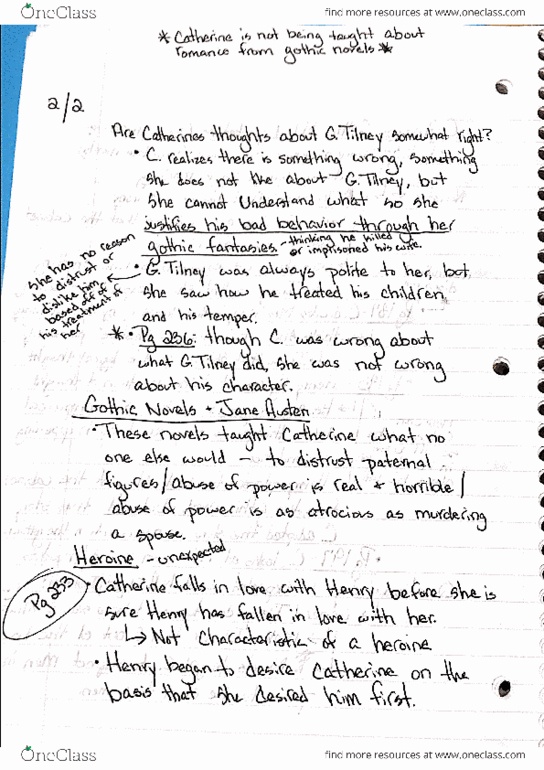 OneClass
find more resources at www.oneclass.com
* Catherine is not being taught about
romance from gothic novels *
2/2
Are Catherines thoughts about G. Tilney somewhat right?
• C. realizes there is something wrong, something
she does not like about G. Tilney, but
she cannot understand what so she
justifies his bad behavior through her
gothic fantasies - thinking he killed
or imprisoned his wife.
She has no reason
to distrust or
dislike him
based off of
his treatment of
her
• G. Tilney was always polite to her, but
she saw how he treated his children
and his temper.
* • Pg 236: though C. was wrong about
what G. Tilney did, she was not wrong
about his character.
Gothic Novels + Jane Austen
• These novels taught Catherine what no
one else would - to distrust paternal
figures/abuse of power is real + horrible/
abuse of power is as atrocious as murdering
a spouse.
Heroine - unexpected
Pg 233
• Catherine falls in love with Henry before she is
sure Henry has fallen in love with her.
↳ Not characteristic of a heroine
• Henry began to desire Catherine on the
basis that she desired him first.
OneClass
find more resources at www.oneclass.com